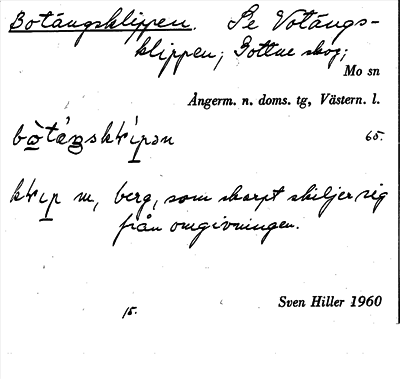 Botångsklippen. Se Votångs-
klippen; Gottne skog;
Mo sn
Ångerm. n. doms. tg, Västern. l.
65.
m, berg, som skarpt skiljer sig
från omgivningen.
Sven Hiller 1960
15.